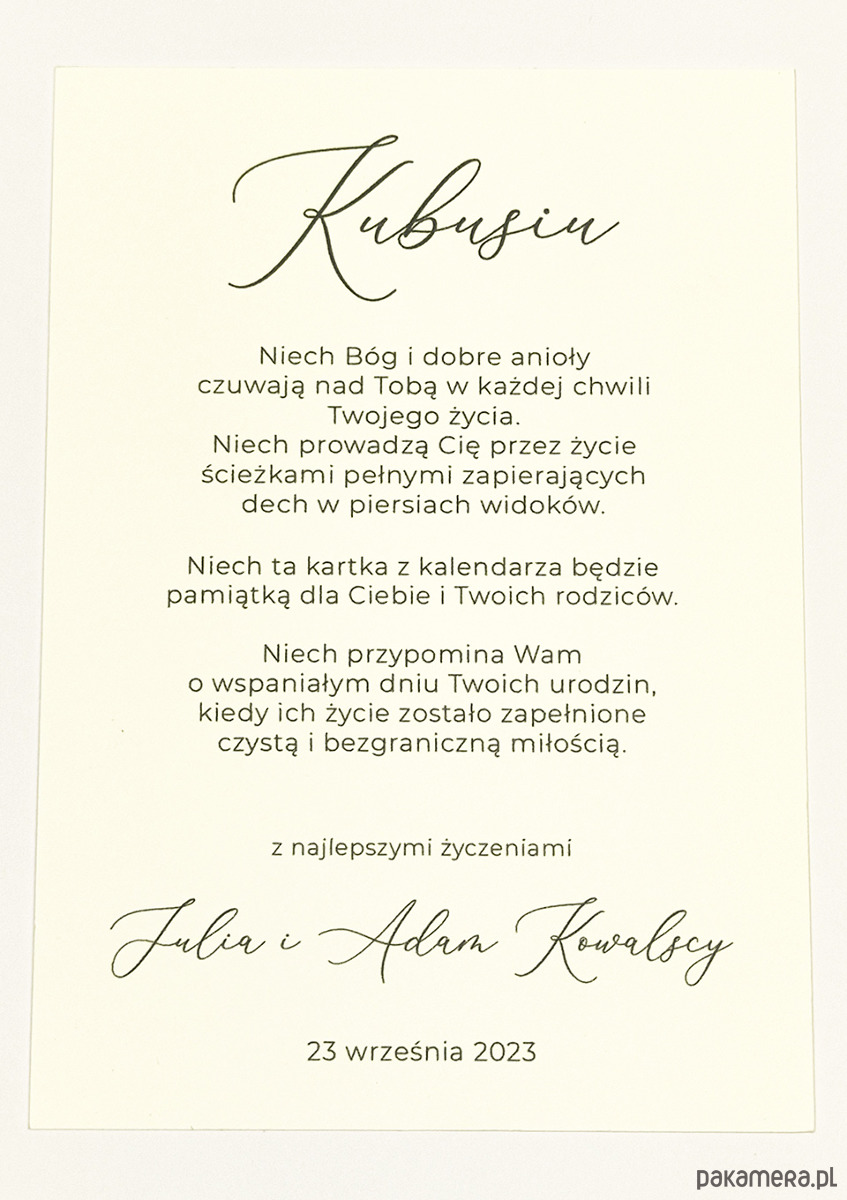 Kubusiu
Niech Bóg i dobre anioły
czuwają nad Tobą w każdej chwili
Twojego życia.
Niech prowadzą Cię przez życie
ścieżkami pełnymi zapierających
dech w piersiach widoków.
Niech ta kartka z kalendarza będzie
pamiątką dla Ciebie i Twoich rodziców.
Niech przypomina Wam
o wspaniałym dniu Twoich urodzin,
kiedy ich życie zostało zapełnione
czystą i bezgraniczną miłością.
z najlepszymi życzeniami
Julia i Adam Kowalscy
23 września 2023
pakamera.pl